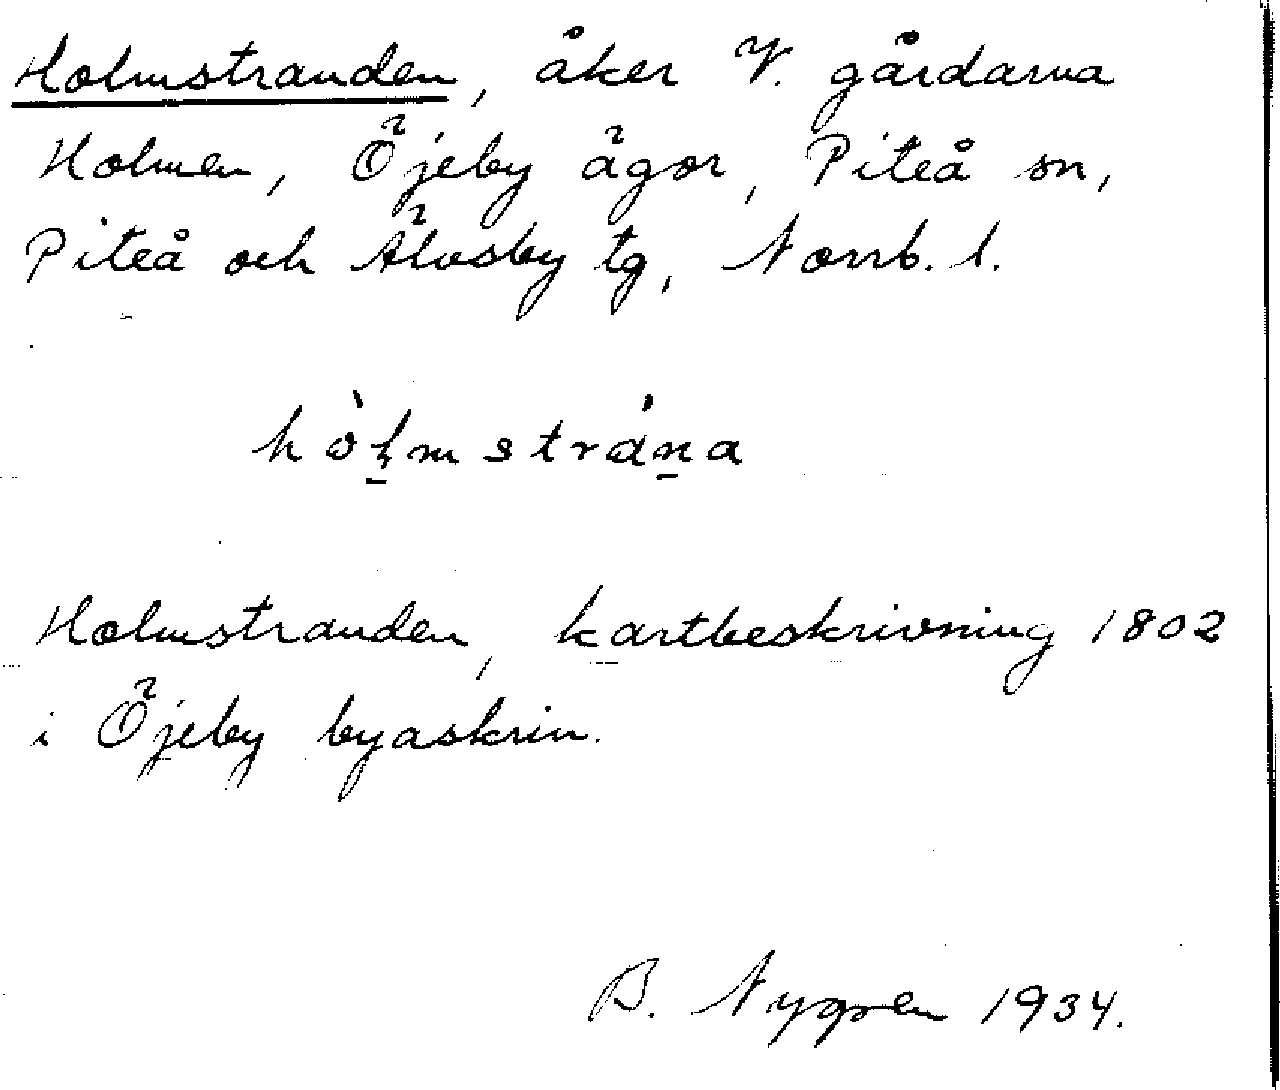 Holmstranden, åker V. gårdarna
Holmen, Öjeby ägor, Piteå sn,
Piteå och Älvsby tg, Norrb. l.
hòl̠mstrán̠a
Holmstranden, kartbeskrivning 1802
i Öjeby byaskrin.
B. Nygren 1934.